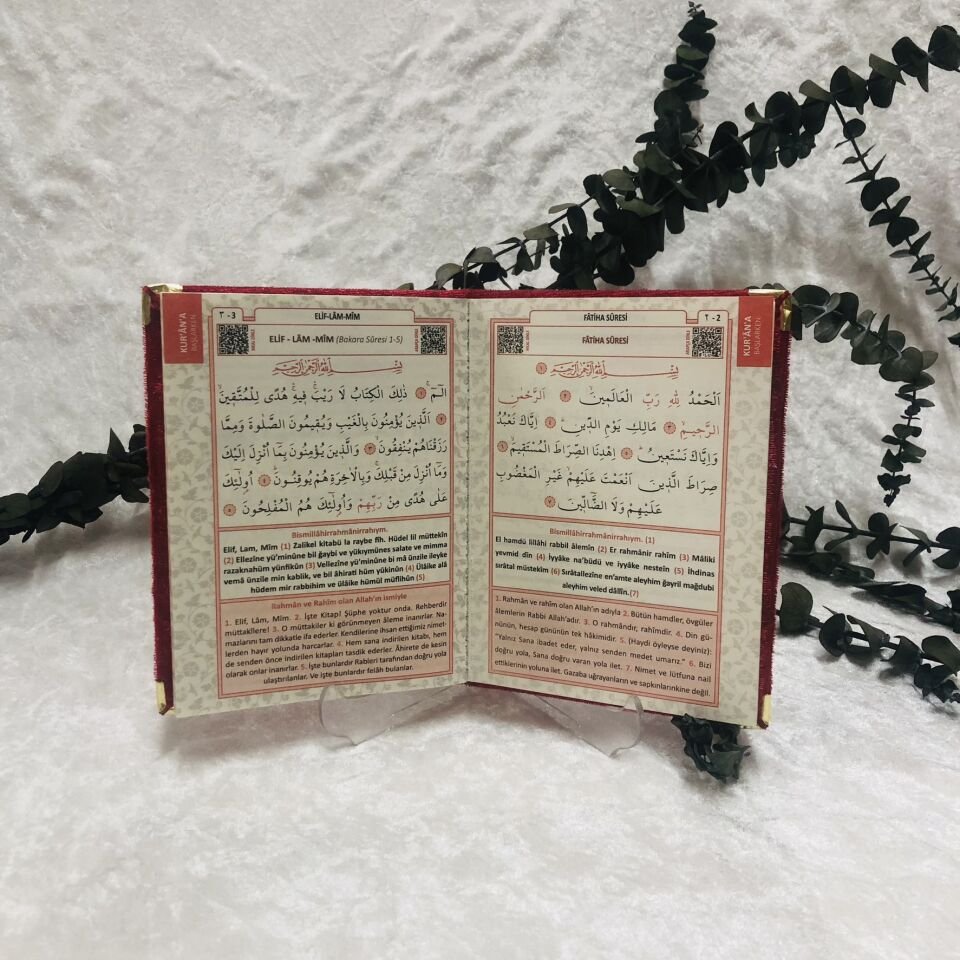 KUR'ÂN'A
BAŞLARKEN
FÂTİHA SÛRESİ
٢ - 2
FÂTİHA SÛRESİ
بِسْمِ اللّٰهِ الرَّحْمٰنِ الرَّح۪يمِ ﴿١﴾
اَلْحَمْدُ لِلّٰهِ رَبِّ الْعَالَم۪ينَۙ ﴿٢﴾ اَلرَّحْمٰنِ
الرَّح۪يمِۙ ﴿٣﴾ مَالِكِ يَوْمِ الدّ۪ينِۜ ﴿٤﴾ اِيَّاكَ نَعْبُدُ
وَاِيَّاكَ نَسْتَع۪ينُۜ ﴿٥﴾ اِهْدِنَا الصِّرَاطَ الْمُسْتَق۪يمَۙ ﴿٦﴾
صِرَاطَ الَّذ۪ينَ اَنْعَمْتَ عَلَيْهِمْۙ غَيْرِ الْمَغْضُوبِ
عَلَيْهِمْ وَلَا الضَّٓالّ۪ينَ ﴿٧﴾
Bismillâhirrahmânirrahıym. (1)
El hamdü lillâhi rabbil âlemîn (2) Er rahmânir rahîm (3) Mâliki
yevmid dîn (4) İyyâke na'büdü ve iyyâke nesteîn (5) İhdinas
sırâtal müstekîm (6) Sırâtallezîne en'amte aleyhim ğayril mağdubi
aleyhim veled dâllîn.(7)
1. Rahmân ve rahîm olan Allah'ın adıyla 2. Bütün hamdler, övgüler
âlemlerin Rabbi Allah'adır. 3. O rahmândır, rahîmdir. 4. Din gü-
nünün, hesap gününün tek hâkimidir. 5. (Haydi öyleyse deyiniz):
"Yalnız Sana ibadet eder, yalnız senden medet umarız." 6. Bizi
doğru yola, Sana doğru varan yola ilet. 7. Nimet ve lütfuna nail
ettiklerinin yoluna ilet. Gazaba uğrayanların ve sapkınlarınkine değil.
KUR'ÂN'A
BAŞLARKEN
٣ - 3
ELİF-LÂM-MÎM
ELİF - LÂM -MÎM (Bakara Sûresi 1-5)
بِسْمِ اللّٰهِ الرَّحْمٰنِ الرَّح۪يمِ
الٓمٓۚ ﴿١﴾ ذٰلِكَ الْكِتَابُ لَا رَيْبَۚۛ ف۪يهِۚۛ هُدًى لِلْمُتَّق۪ينَۙ
﴿٢﴾ اَلَّذ۪ينَ يُؤْمِنُونَ بِالْغَيْبِ وَيُق۪يمُونَ الصَّلٰوةَ وَمِمَّا
رَزَقْنَاهُمْ يُنْفِقُونَۙ ﴿٣﴾ وَالَّذ۪ينَ يُؤْمِنُونَ بِمَٓا اُنْزِلَ اِلَيْكَ
وَمَٓا اُنْزِلَ مِنْ قَبْلِكَۚ وَبِالْاٰخِرَةِ هُمْ يُوقِنُونَۜ ﴿٤﴾ اُو۬لٰٓئِكَ
عَلٰى هُدًى مِنْ رَبِّهِمْ وَاُو۬لٰٓئِكَ هُمُ الْمُفْلِحُونَ ﴿٥﴾
Bismillâhirrahmânirrahıym.
Elif, Lam, Mîm (1) Zalikel kitabü la raybe fîh. Hüdel lil müttekîn
(2) Ellezîne yü'minûne bil ğaybi ve yükıymünes salate ve mimma
razaknahüm yünfikûn (3) Vellezîne yü'minûne bi mâ ünzile ileyke
vemâ ünzile min kablik, ve bil âhirati hüm yûkinûn (4) Ülâike alâ
hüdem mir rabbihim ve ülâike hümül müflihûn (5)
Rahmân ve Rahîm olan Allah'ın ismiyle
1. Elif, Lâm, Mîm. 2. İşte Kitap! Şüphe yoktur onda. Rehberdir
müttakîlere! 3. O müttakiler ki görünmeyen âleme inanırlar. Na-
mazlarını tam dikkatle ifa ederler. Kendilerine ihsan ettiğimiz nimet-
lerden hayır yolunda harcarlar. 4. Hem sana indirilen kitabı, hem
de senden önce indirilen kitapları tasdik ederler. Âhirete de kesin
olarak onlar inanırlar. 5. İşte bunlardır Rableri tarafından doğru yola
ulaştırılanlar. Ve işte bunlardır felâh bulanlar.